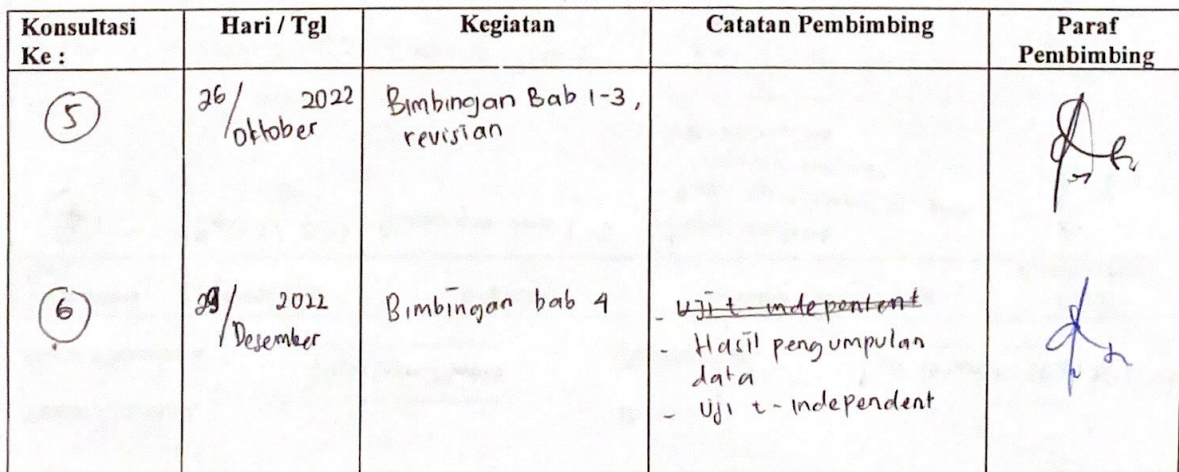 Konsultasi Ke :
Hari / Tgl
Kegiatan
Catatan Pembimbing
Paraf Pembimbing
5
26/ 2022
Oktober
Bimbingan Bab 1-3,
revisian
6
29/ 2022
Desember
Bimbingan bab 4
- Uji t-indepentent
- Hasil pengumpulan
data
- Uji t-independent